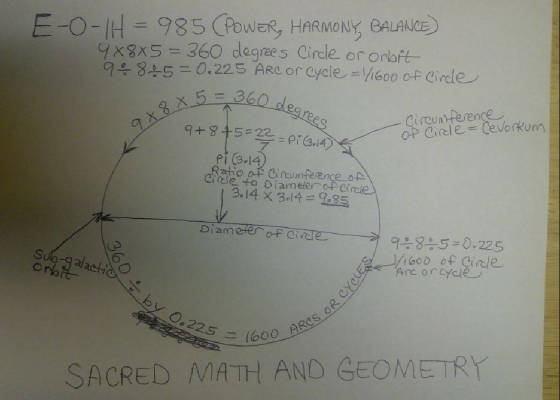 E-O-IH = 985 (POWER, HARMONY, BALANCE)
9×8×5 = 360 degrees Circle or orbit
9÷8÷5 = 0.225 Arc or cycle = 1/1600 of Circle
9×8×5 = 360 degrees
Circumference
of Circle = Cevorkum
9+8+5 = 22/7 = Pi (3.14)
Pi (3.14)
Ratio of Circumference of
Circle to Diameter of Circle
3.14 × 3.14 = 9.85
Diameter of Circle
Sub-galactic
orbit
9÷8÷5 = 0.225
1/1600 of Circle
Arc or cycle
360 ÷ by 0.225 = 1600 ARCS OR CYCLES
SACRED MATH AND GEOMETRY